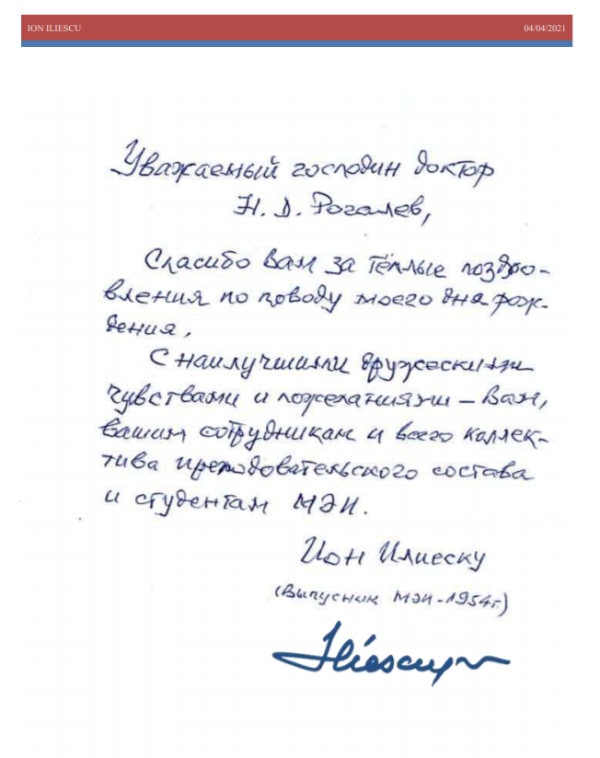 ION ILIESCU 04/04/2021
Уважаемый господин доктор
Н. Д. Рогалев,
Спасибо Вам за тёплые поздро-
вления по поводу моего дня рож-
дения.
С наилучшими дружескими
чувствами и пожеланиями – Вам,
вашим сотрудникам и всего коллек-
тива преподовательского состава
и студентам МЭИ.
Ион Илиеску
(Выпусник МЭИ-1954г.)
Iliescu